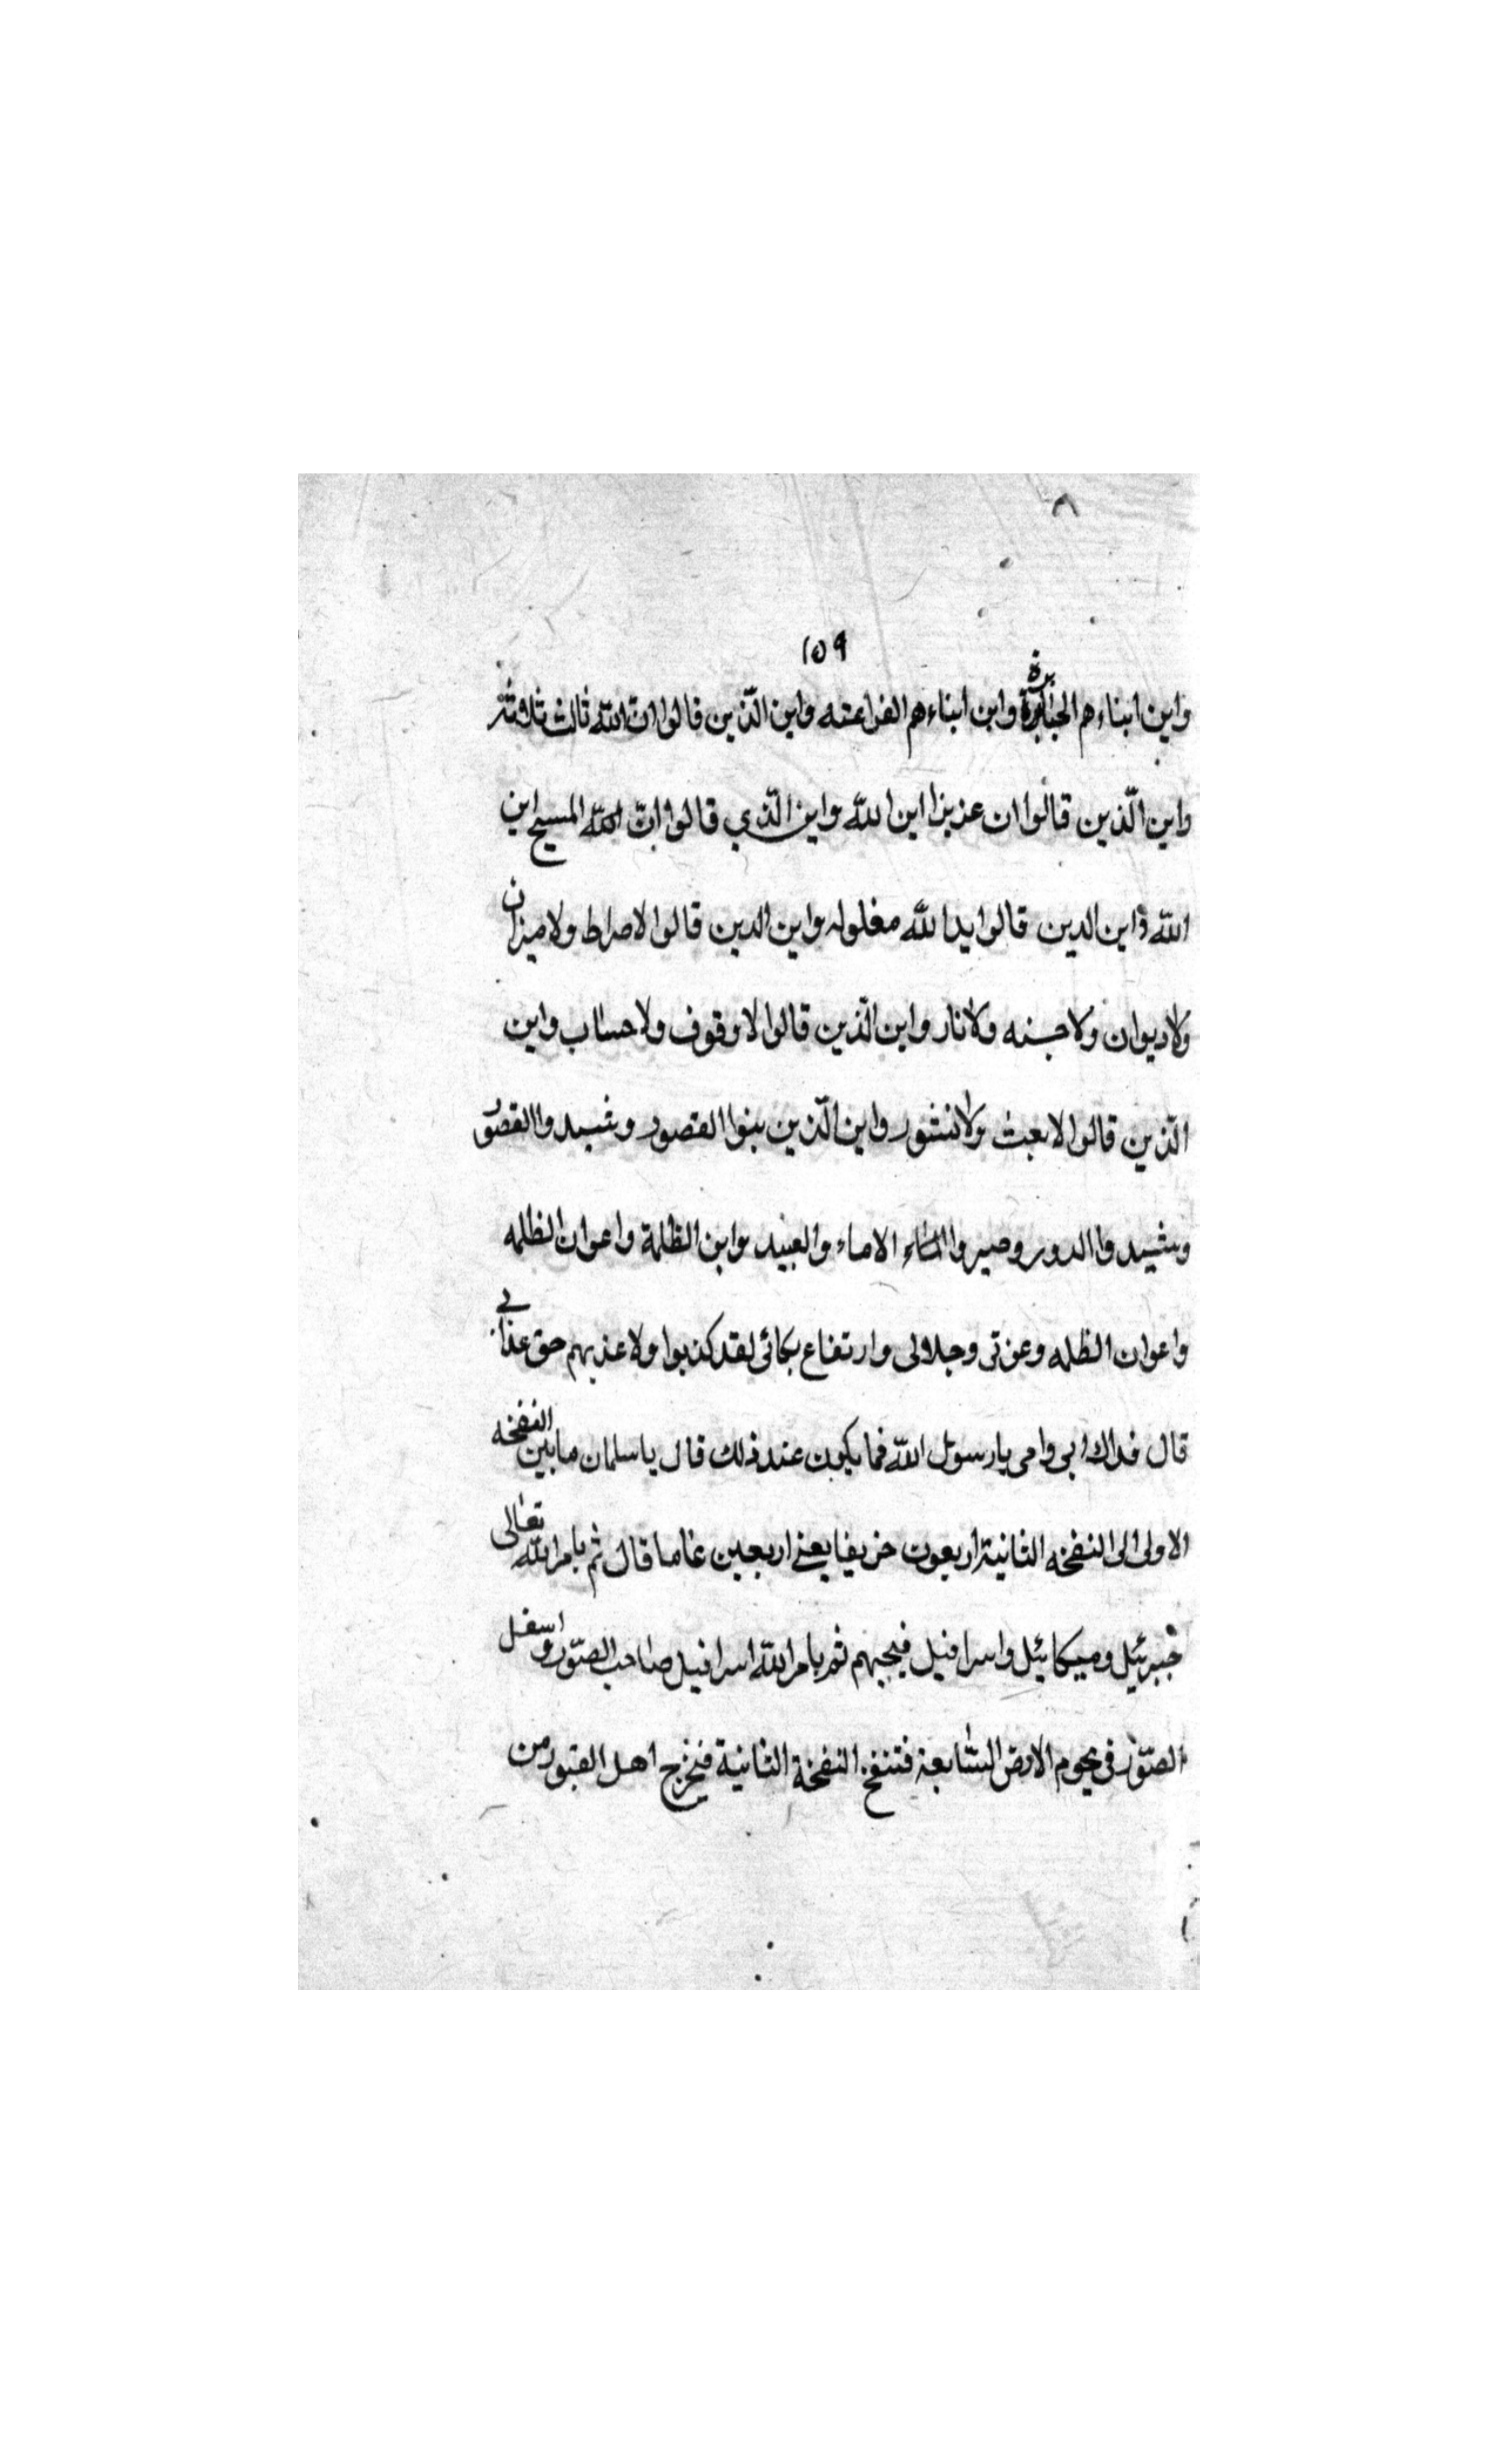 ١٥٩
واين ابناءهم الجبابرة واين ابناءهم الفراعنه واين الّذين قالوا انّ الله ثالث ثلاثة
واين الّذين قالوا ان عزيزا ابن الله واين الّذي قالوا انّ الله المسيح ابن
الله واين الدين قالوا يدا لله مغلوله واين الدين قالوا لاصراط ولا ميزان
ولا ديوان ولا جنه ولا نار واين الّذين قالوا لا وقوف ولا حساب واين
الّذين قالوا لا بعث ولا نشور واين الّذين بنوا القصور وشيدوا القصور
وشيدوا الدور وصيروا الاماء والعبيد واين الظلمة واعوان الظلمه
واعوان الظله وعزتى وجلالى وارتفاع مكانى لقد كذبوا ولاعذبهم حق عذابى
قال فداك ابى وامى يا رسول الله فما يكون عند ذلك قال يا سلمان ما بين النفخه
الاولى الى النفخه الثانية اربعون خريفا يعنى اربعين عاما قال ثم يامر الله تعالى
جبرئيل وميكائيل واسرافيل فيحيهم ثم يامر الله اسرافيل صاحب الصّور واسفل
الصّور فى نجوم الارض السّابعة فتنفخ النفخة الثانية فيخرج اهل القبور من